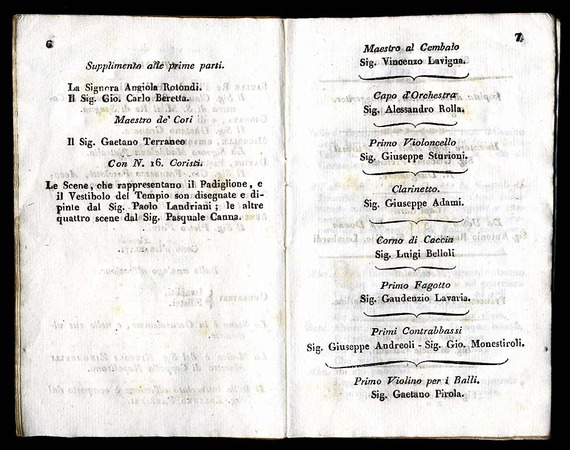 6
Supplimento alle prime parti.
La Signora Angiola Rotondi.
Il Sig. Gio. Carlo Beretta.
Maestro de' Cori
Il Sig. Gaetano Terraneo
Con N. 16. Coristi.
Le Scene, che rappresentano il Padiglione, e
il Vestibolo del Tempio son disegnate e di-
pinte dal Sig. Paolo Landriani; le altre
quattro scene dal Sig. Pasquale Canna.
7
Maestro al Cembalo
Sig. Vincenzo Lavigna.
Capo d'Orchestra
Sig. Alessandro Rolla.
Primo Violoncello
Sig. Giuseppe Sturioni.
Clarinetto.
Sig. Giuseppe Adami.
Corno di Caccia
Sig. Luigi Belloli
Primo Fagotto
Sig. Gaudenzio Lavaria.
Primi Contrabbassi
Sig. Giuseppe Andreoli - Sig. Gio. Monestiroli.
Primo Violino per i Balli.
Sig. Gaetano Pirola.